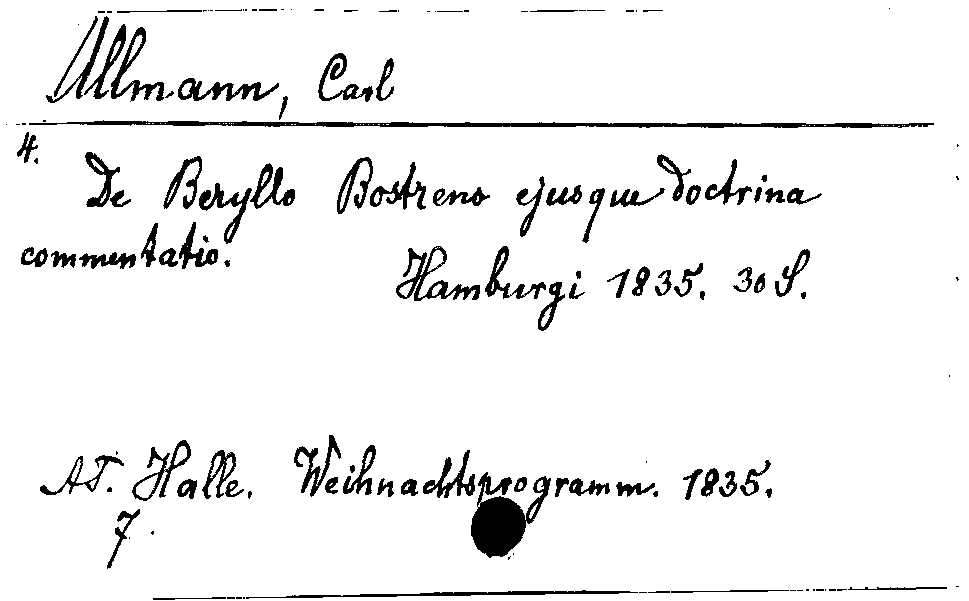 Ullmann, Carl
4.
De Beryllo Bostreno ejusque doctrina
commentatio.
Hamburgi 1835. 30 S.
AT. Halle. Weihnachtsprogramm. 1835.
7